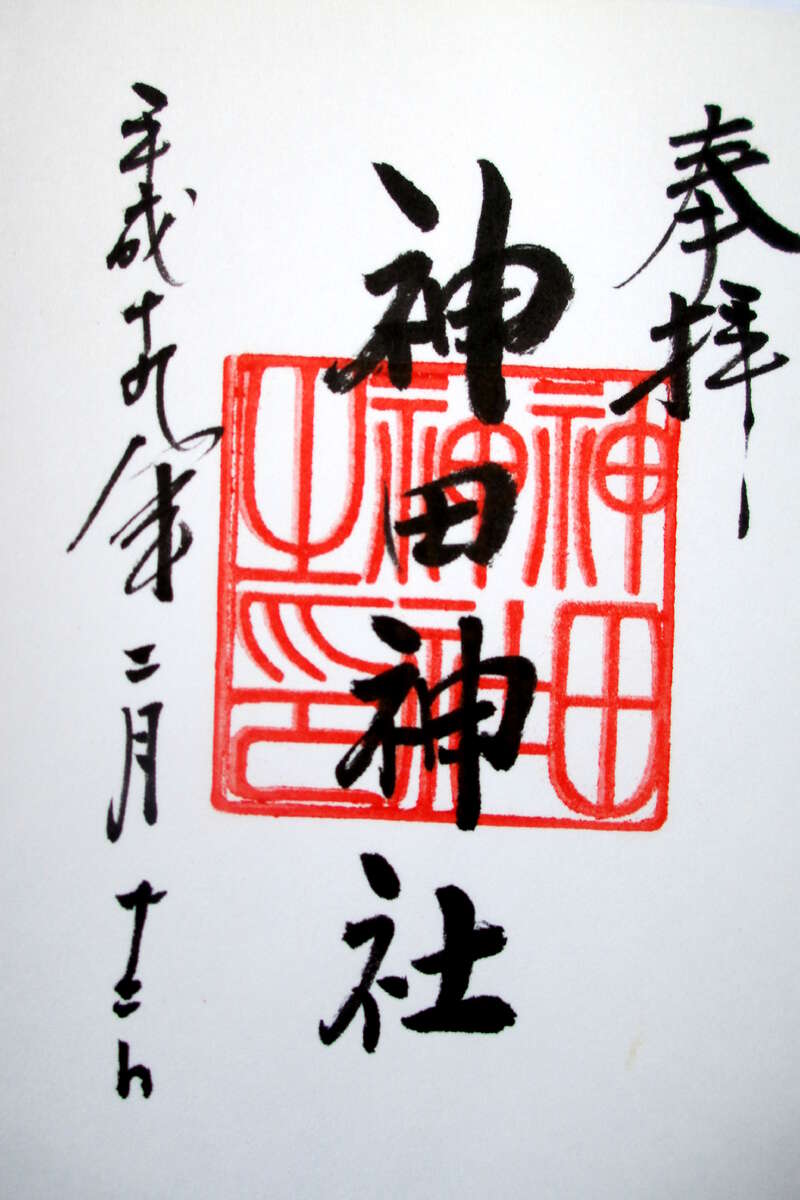 奉拝
神田神社
神田神社之印
平成十九年二月十二日